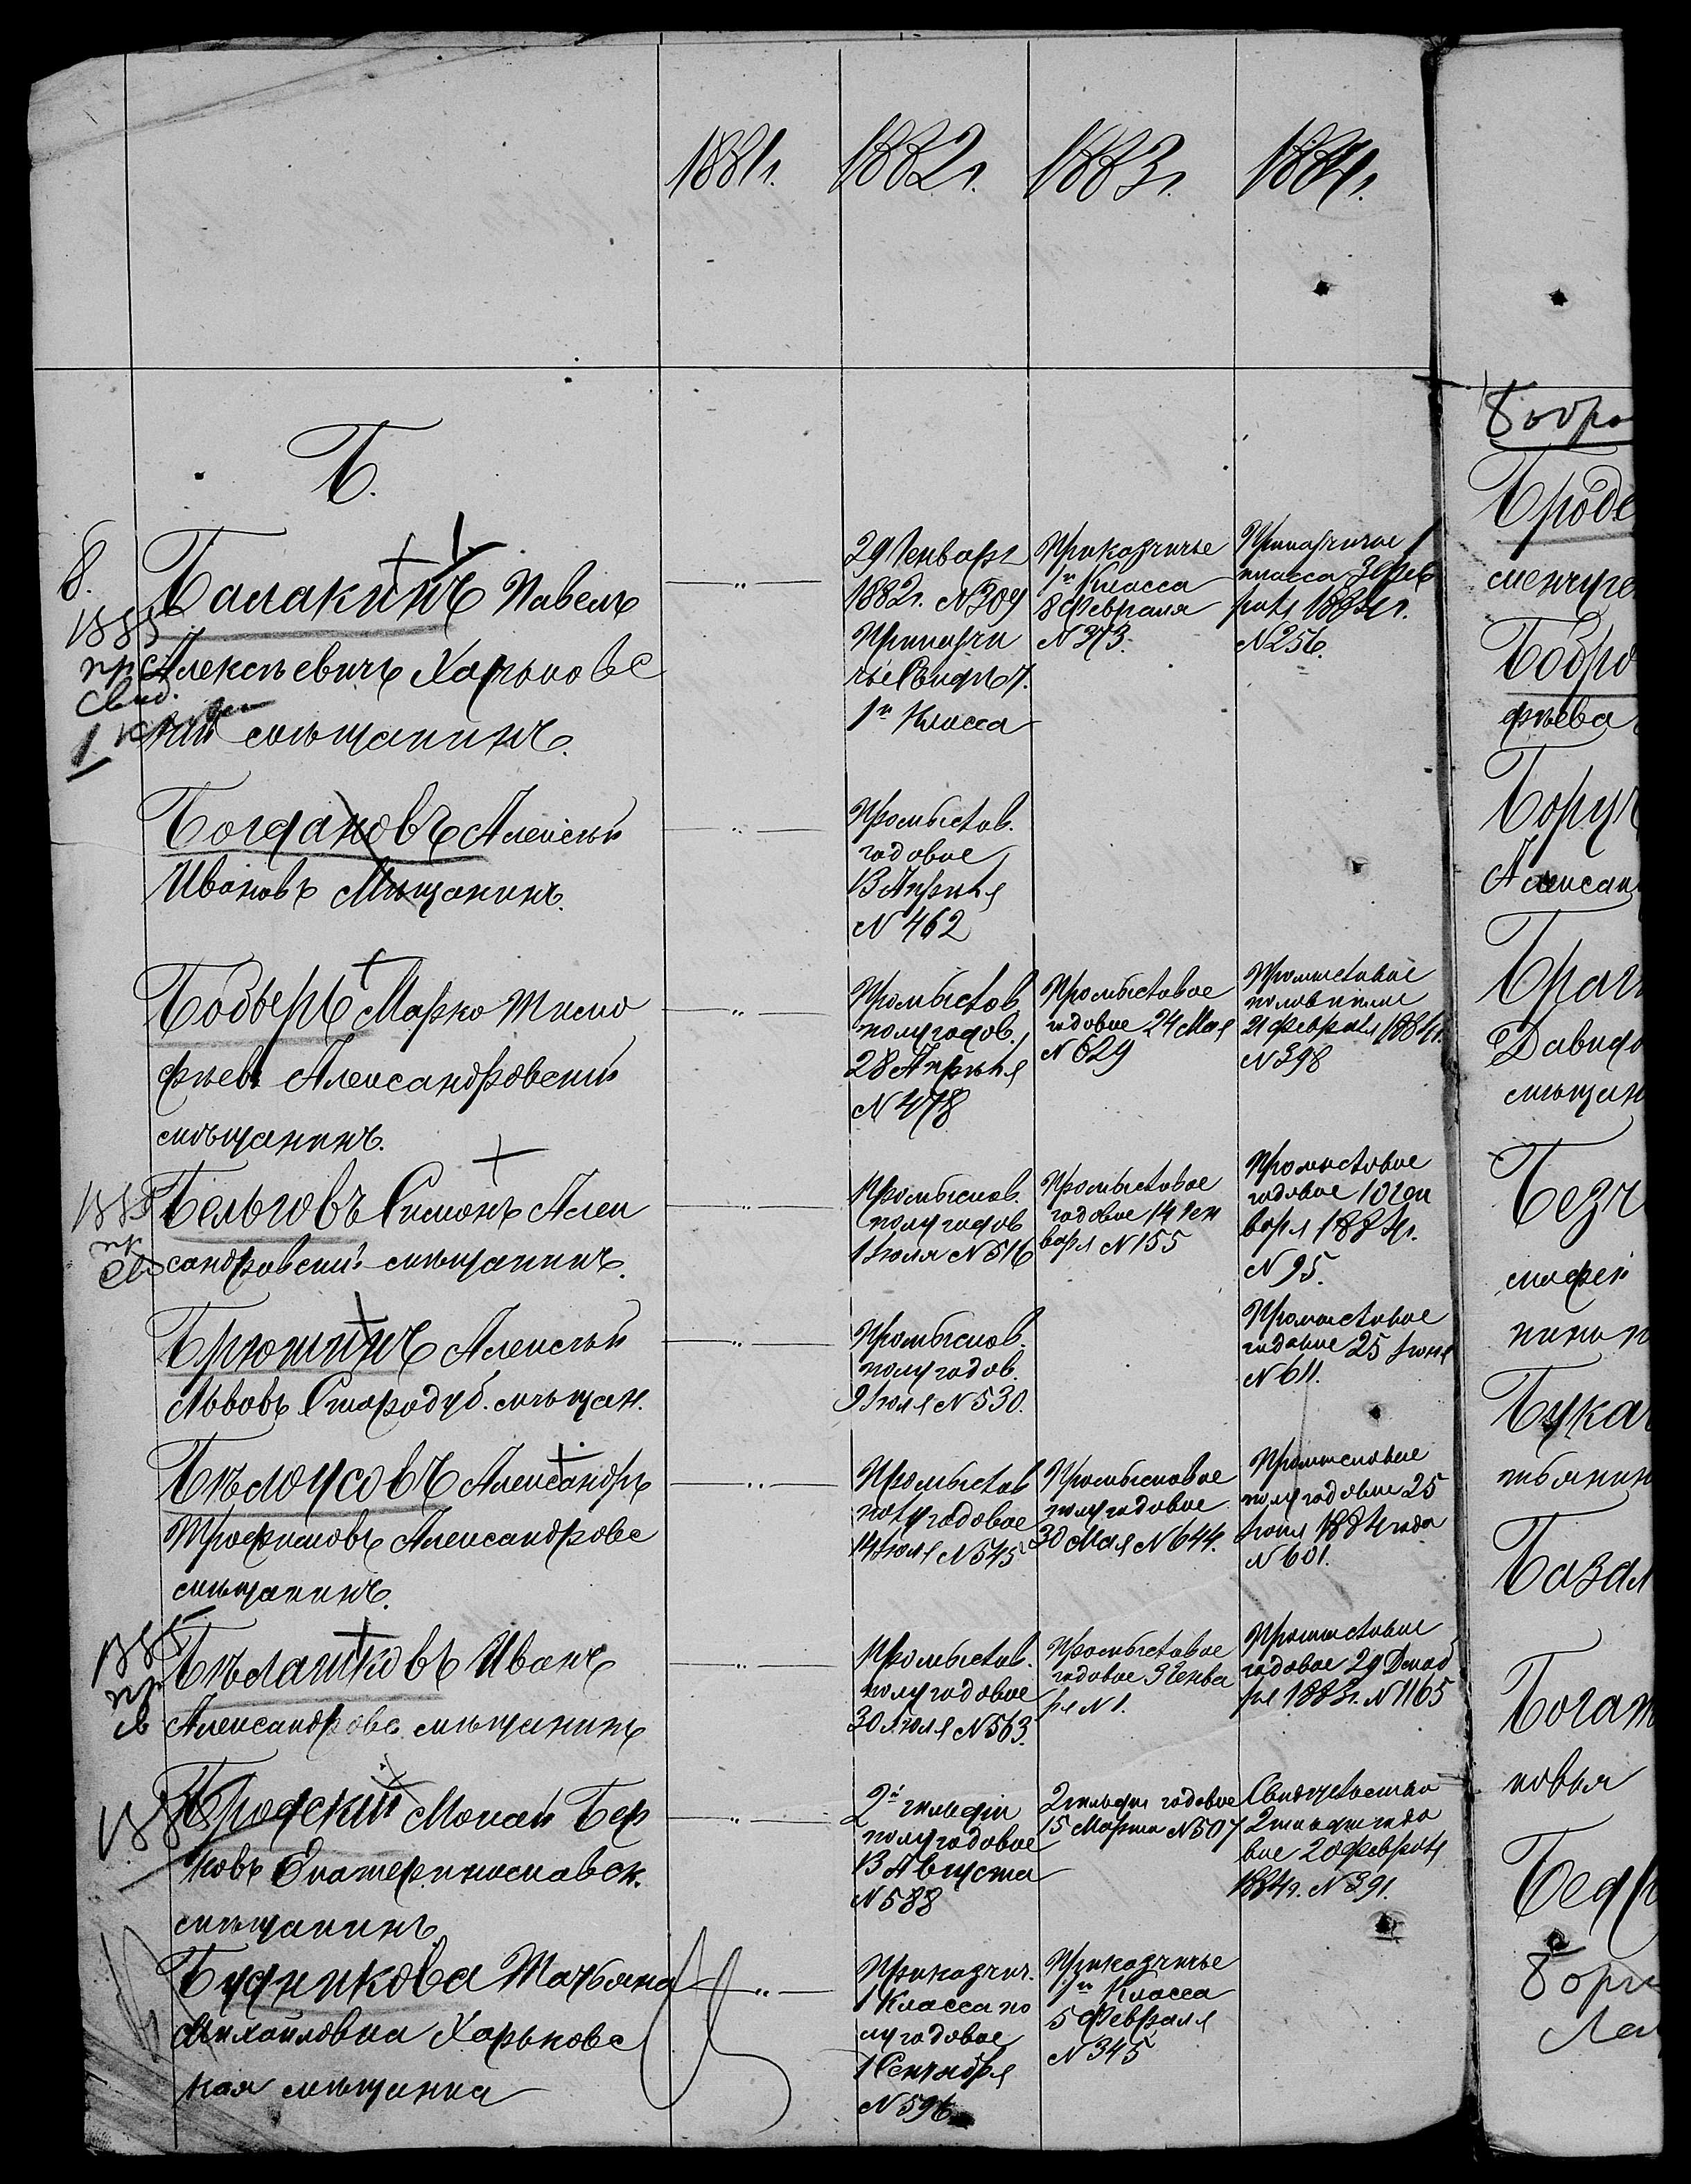 1881г. 1882г. 1883г. 1884г.
Б.
8.
1885
пр
Свид.
1 кл
Балакинъ Павелъ
Алексѣевичъ Харьковс
кій мѣщанинъ.
—〃—
29 Генваря
1882г. №309
Прикащи
чье Свидѣт.
1го Класса
Приказчичье
1го Класса
8 Февраля
№ 373.
класса 3 Фев
раля 1884г.
№ 256.
Богдановъ Алексѣй
Ивановъ Мѣщанинъ.
—〃—
Промыслов.
годовое
13 Апрѣля
№ 462
Бовберъ Марко Тимо
фѣевъ Александровскій
мѣщанинъ.
—〃—
Промыслов
полугодов.
28 Апрѣля
№ 478
Промысловое
годовое 24 Мая
№ 629
Промысловое
21 февраля 1884г.
№ 398
1885
пр
св
Бельговъ Симонъ Алек
сандровскій мѣщанинъ.
—〃—
Промыслов.
полугодов
1 Іюля № 516
Промысловое
годовое 14 Ген
варя № 155
Промысловое
годовое 10 Ген
варя 1884г.
№ 95.
Брюшинъ Алексѣй
Львовъ Стародуб. мѣщан.
—〃—
Промыслов.
полугодов.
9 Іюля № 530.
Промысловое
годовое 25 Іюня
№ 611.
Бѣлоусовъ Александръ
Трофимовъ Александровс
мѣщанинъ.
—〃—
Промыслов
полугодовое
14 Іюля № 545
Промысловое
полугодовое
30 Мая № 644.
Промысловое
полугодовое 25
Іюня 1884 года
№ 601.
1885
пр
св
Бѣлашковъ Иванъ
Александровс мѣщанинъ
—〃—
Промыслов.
полугодовое
30 Іюля № 563.
Промысловое
годовое 3 Генва
ря № 1.
Промысловое
годовое 29 Декаб
ря 1883г. № 1165
1885
Бродскій Монаи Бер
ковъ Екатеринославск.
мѣщанинъ.
—〃—
2й гильдіи
полугодовое
13 Августа
№ 588
2 гильдіи годовое
15 Марта № 507
Свидѣтельство
2 гильдіи годо
вое 20 февраля
1884г. № 391.
Будникова Татьяна
Михайловна Харьковс
кая мѣщанка
—〃—
Приказчич.
1 Класса по
лугодовое
1 Сентября
№ 596
Приказчичье
1го Класса
5 Февраля
№ 345
Броде
Бобро
фѣева
Боруч
Александ
Браги
Давидо
мѣщан
Безч
Букат
Базал
Богат
новья
Бедр